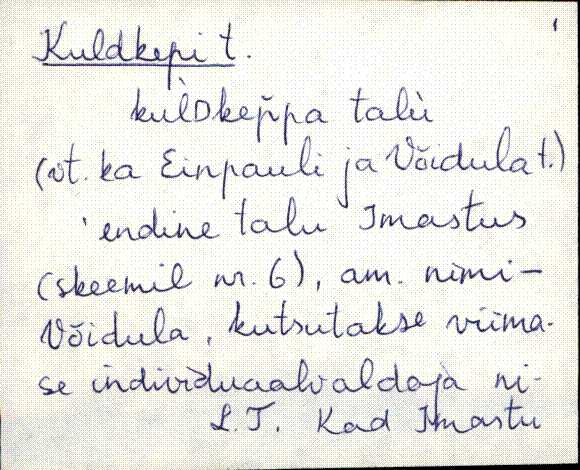 Kuldkepi t.
kùlDkep̆pa talù
(vt. ka Einpauli ja Võidula t.)
'endine talu Imastus
(skeemil nr. 6), am. nimi-
Võidula, kutsutakse viima-
se individuaalvaldaja ni-
L.T. Kad Imastu